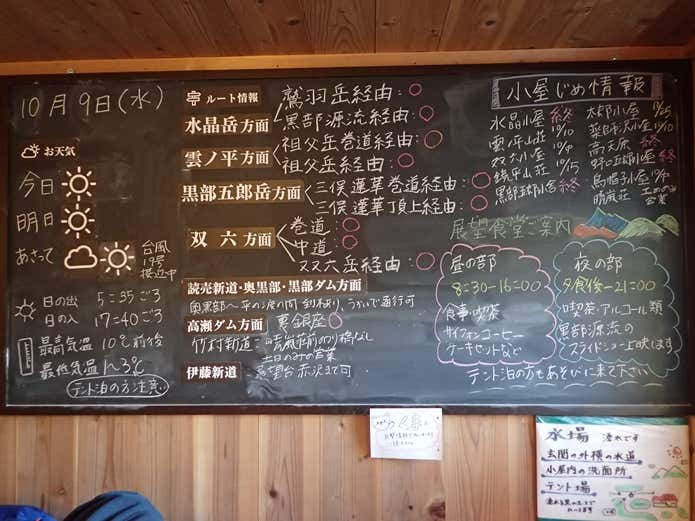 10月9日(水)
お天気
今日
明日
あさって
台風
19号
接近中
日の出 5:35ごろ
日の入 17:40ごろ
最高気温 10℃前後
最低気温 1~3℃
テント泊の方注意
ルート情報
水晶岳方面
鷲羽岳経由:○
黒部源流経由:○
雲ノ平方面
祖父岳巻道経由:○
祖父岳経由:○
黒部五郎岳方面
三俣蓮華巻道経由:○
三俣蓮華頂上経由:○
双六方面
巻道:○
中道:○
双六岳経由:○
読売新道・奥黒部・黒部ダム方面
高瀬ダム方面
裏銀座○
竹村新道:
土日のみの営業
伊藤新道
展望台赤沢まで可
小屋じめ情報
水晶小屋 終
雲ノ平山荘 10/10
双六小屋 10/15
鏡平山荘
黒部五郎小舎 終
太郎小屋
薬師沢小屋 10/10
高天原 終
野口五郎小屋 終
烏帽子小屋
晴嵐荘 土日のみ
営業
展望食堂ご案内
昼の部
8:30-16:00
食事・喫茶
サイフォンコーヒー
ケーキセットなど
夜の部
夕食後-21:00
喫茶・アルコール類
黒部源流の
スライドショー上映します
テント泊の方もあそびに来て下さい
水場
玄関の外横の水道
小屋内の洗面所
テント場